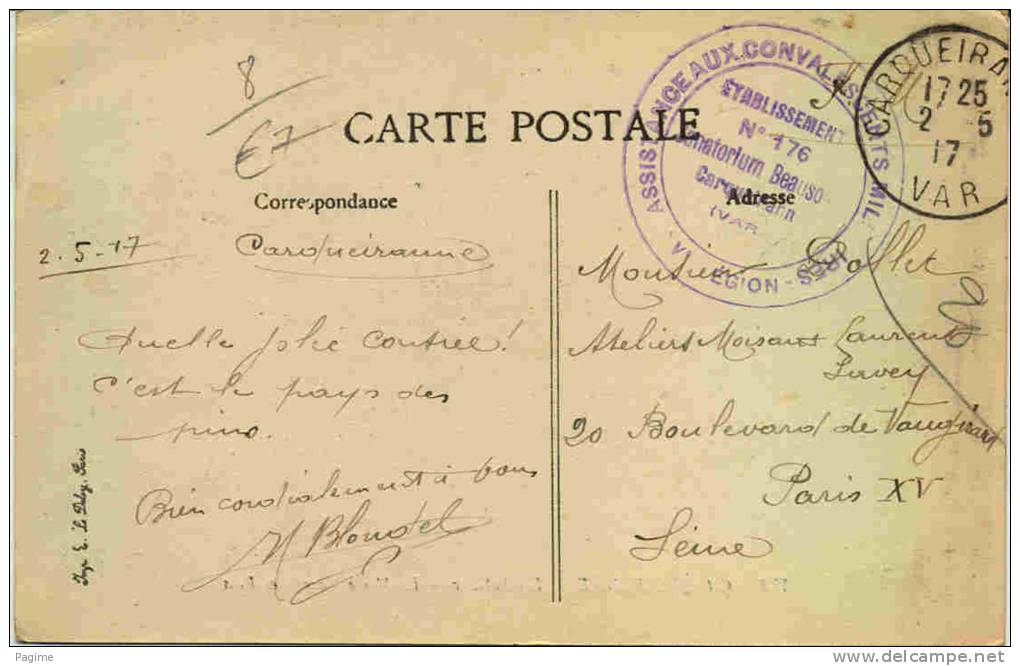 8
€7
CARTE POSTALE
ASSISTANCE AUX CONVALESCENTS MILITAIRES - RÉGION -
ÉTABLISSEMENT
N° 176
Sanatorium Beauso
Carqueirann
(VAR
CARQUEIRAN
17 25
2 5
17
VAR
F.M.
Correspondance
Adresse
2.5-17
Carqueiranne
Quelle jolie contrée!
c'est le pays des
pins.
Bien cordialement à vous
M Blondel
Monsieur Collet
Ateliers Moisant Laurent
Savey
20 Boulevard de Vaugirard
Paris XV
Seine
Imp. E. Le Deley, Paris
Pagime
delcampe.net